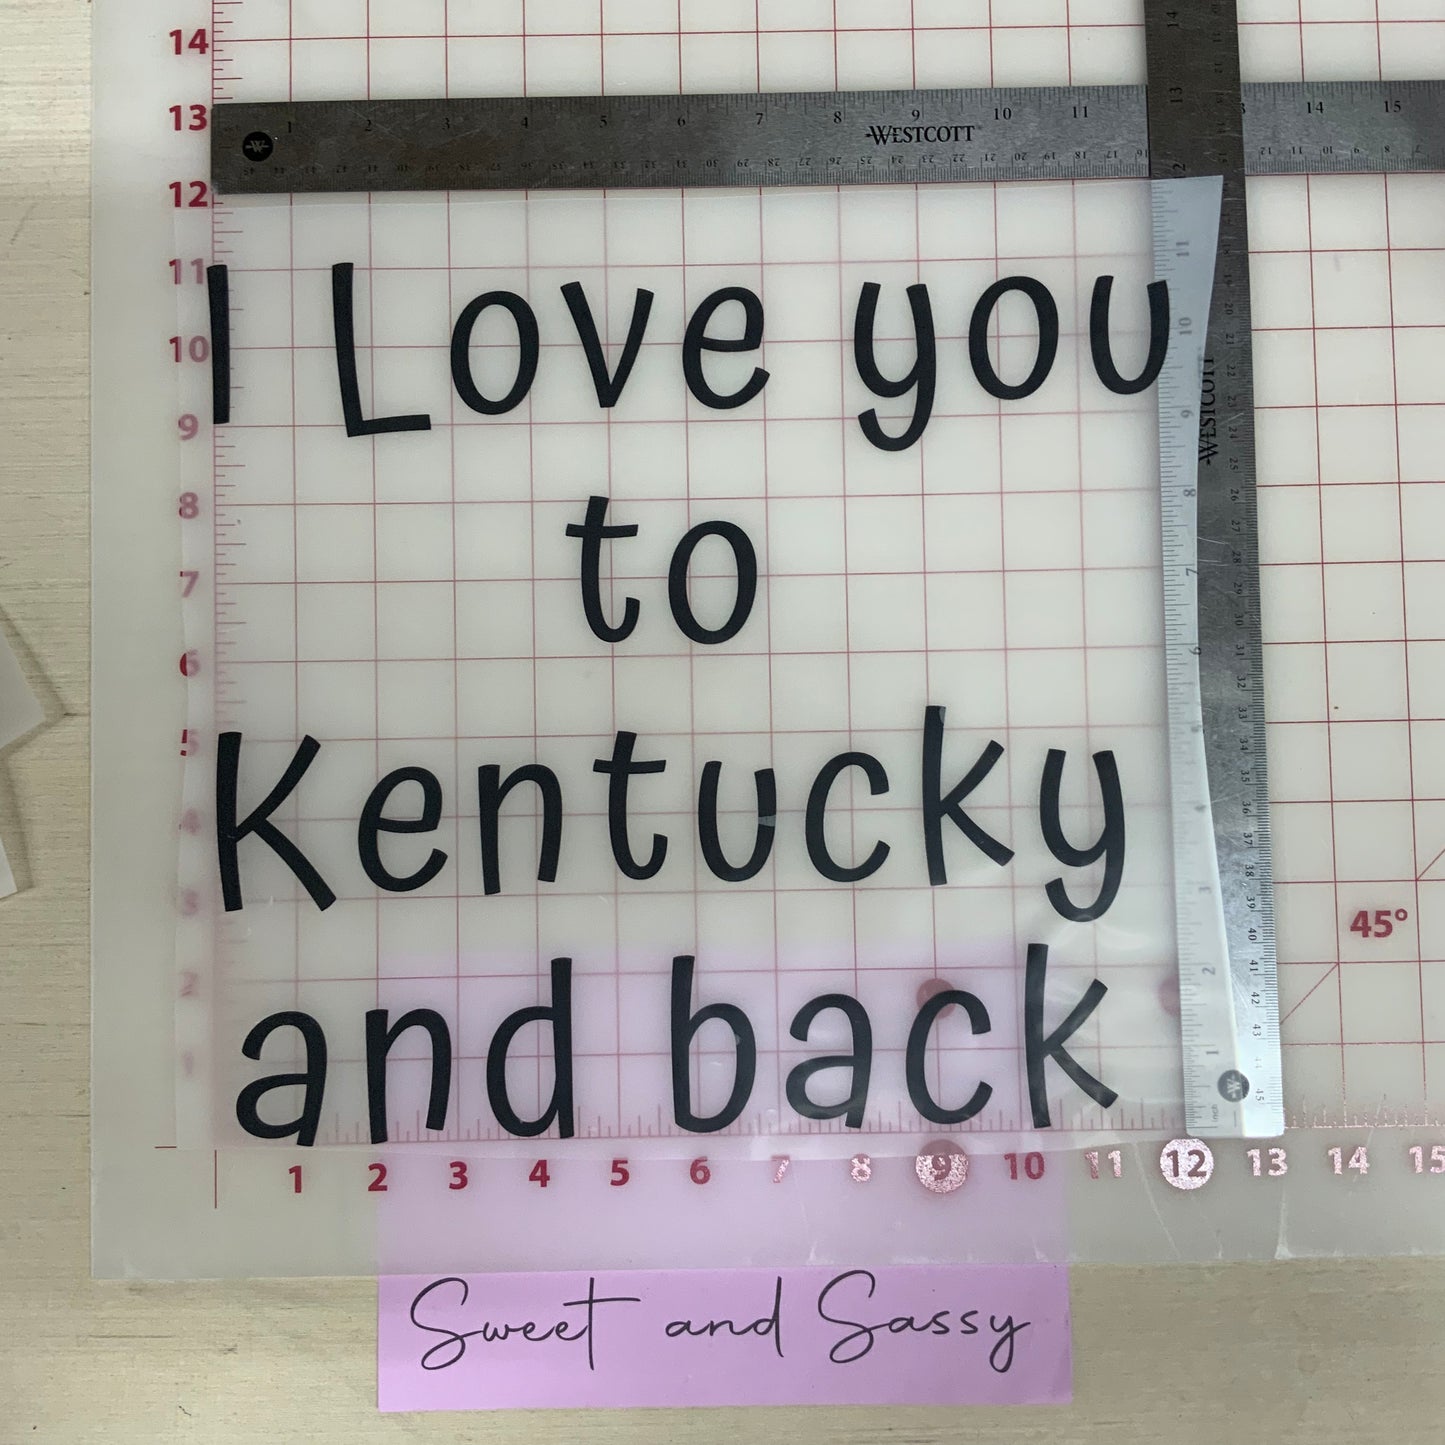 14
13
12
11
10
9
8
7
6
5
4
3
2
1
1 2 3 4 5 6 7 8 9 10 11 14 15
WESTCOTT
WESTCOTT
I Love you
to
Kentucky
and back
45°
1 2 3 4 5 6 7 8 9 10 11 12 13 14 15
Sweet and Sassy